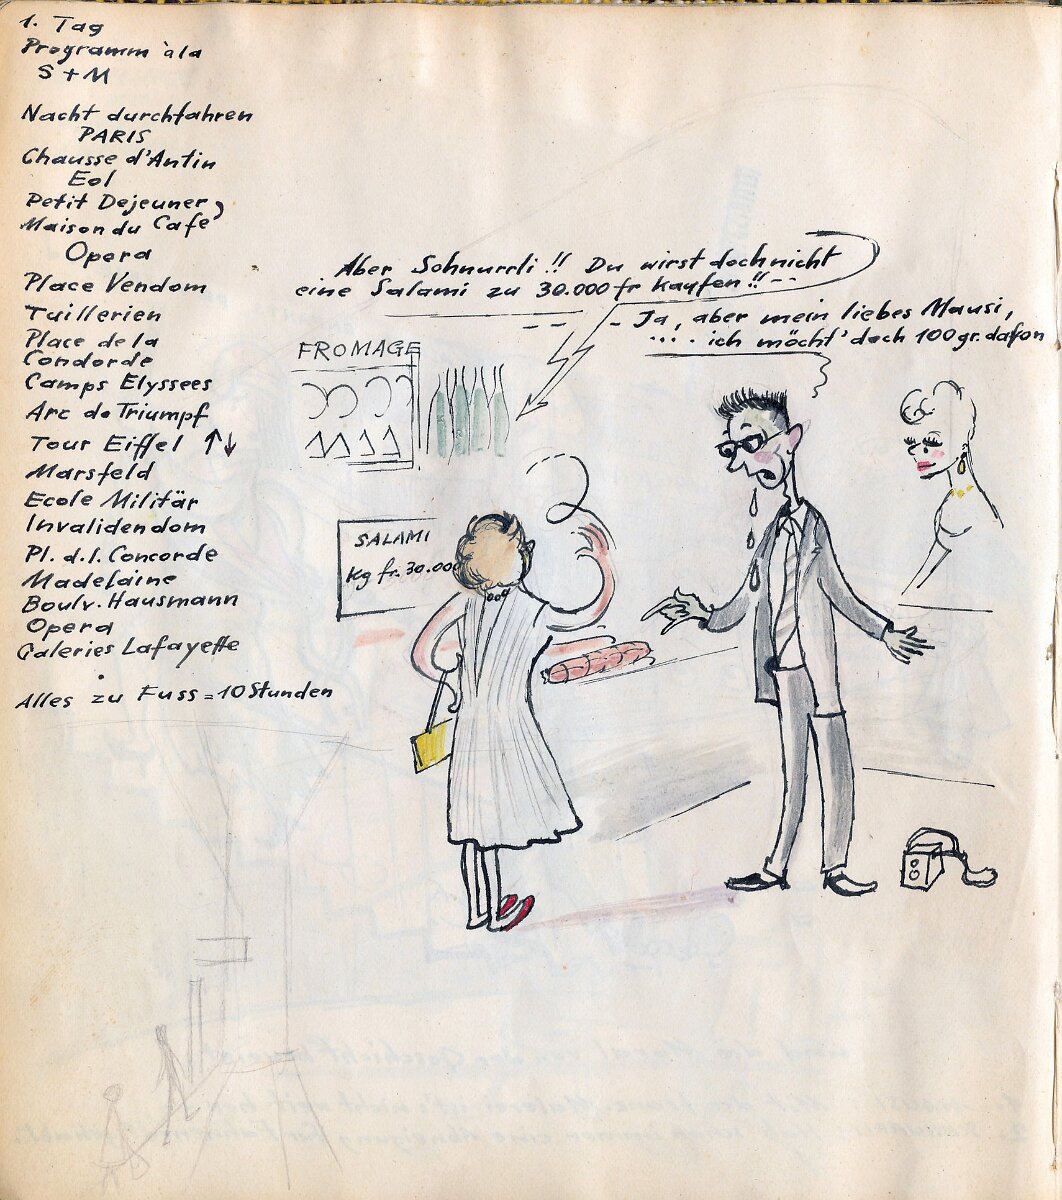 1. Tag
Programm àla
S + M
Nacht durchfahren
PARIS
Chausse d'Antin
Eol
Petit Dejeuner,
Maison du Cafe
Opera
Place Vendom
Tuillerien
Place de la
Condorde
Camps Elyssees
Arc de Triumpf
Tour Eiffel ↑↓
Marsfeld
Ecole Militär
Invalidendom
Pl. d. l. Concorde
Madelaine
Boulv. Hausmann
Opera
Galeries Lafayette
Alles zu Fuss = 10 Stunden
Aber Schnurrli!! Du wirst doch nicht
eine Salami zu 30.000 fr kaufen!! --
-- - Ja, aber mein liebes Mausi,
.... ich möcht' doch 100 gr. dafon
FROMAGE
SALAMI
kg fr. 30.000